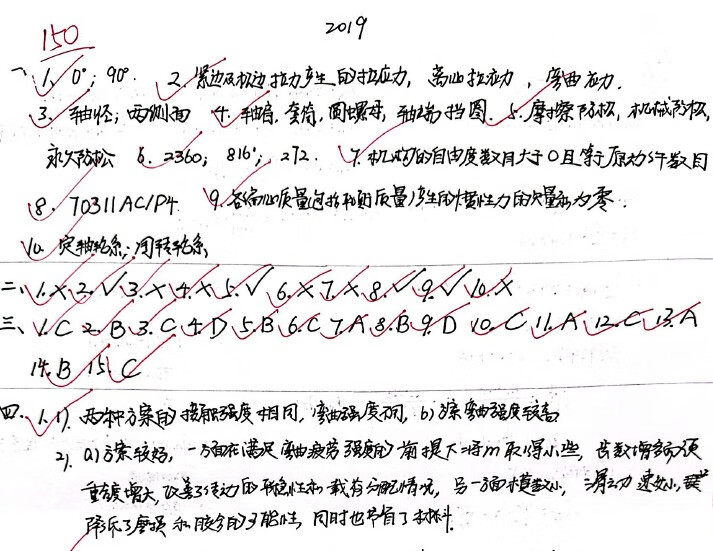 2019
150
一、1. 0°; 90°. 2. 紧边及松边拉力产生的拉应力, 离心拉应力, 弯曲应力.
3. 轴径; 两侧面 4. 轴肩, 套筒, 圆螺母, 轴端挡圈. 5. 摩擦防松, 机械防松,
永久防松 6. 2360; 816; 272. 7. 机构的自由度数目大于0且等于原动件数目
8. 70311AC/P4 9. 各偏心质量(包括配质量)产生的惯性力的矢量和为零.
10. 定轴轮系; 周转轮系
二、1.X 2.√ 3.X 4.X 5.√ 6.X 7.X 8.√ 9.√ 10.X
三、1.C 2.B 3.C 4.D 5.B 6.C 7.A 8.B 9.D 10.C 11.A 12.C 13.A
14.B 15.C
四、1. 1). 两种方案的接触强度相同, 弯曲强度不同, b)方案弯曲强度较高
2). a)方案较好, 一方面在满足弯曲疲劳强度的前提下将m取得小些, 齿数增多方须
重合度增大, 改善了传动的平稳性和载荷分配情况, 另一方面模数小, 滑动速度小,
降低了磨损和胶合的可能性, 同时也节省了材料.